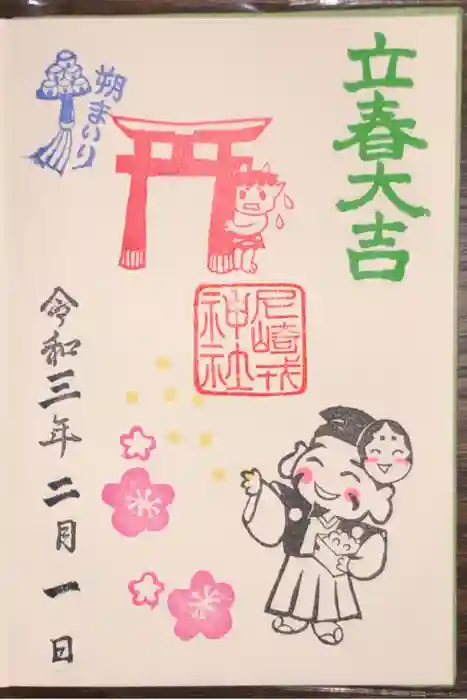 立春大吉
朔まいり
尼崎戎
神社
令和三年 二月一日